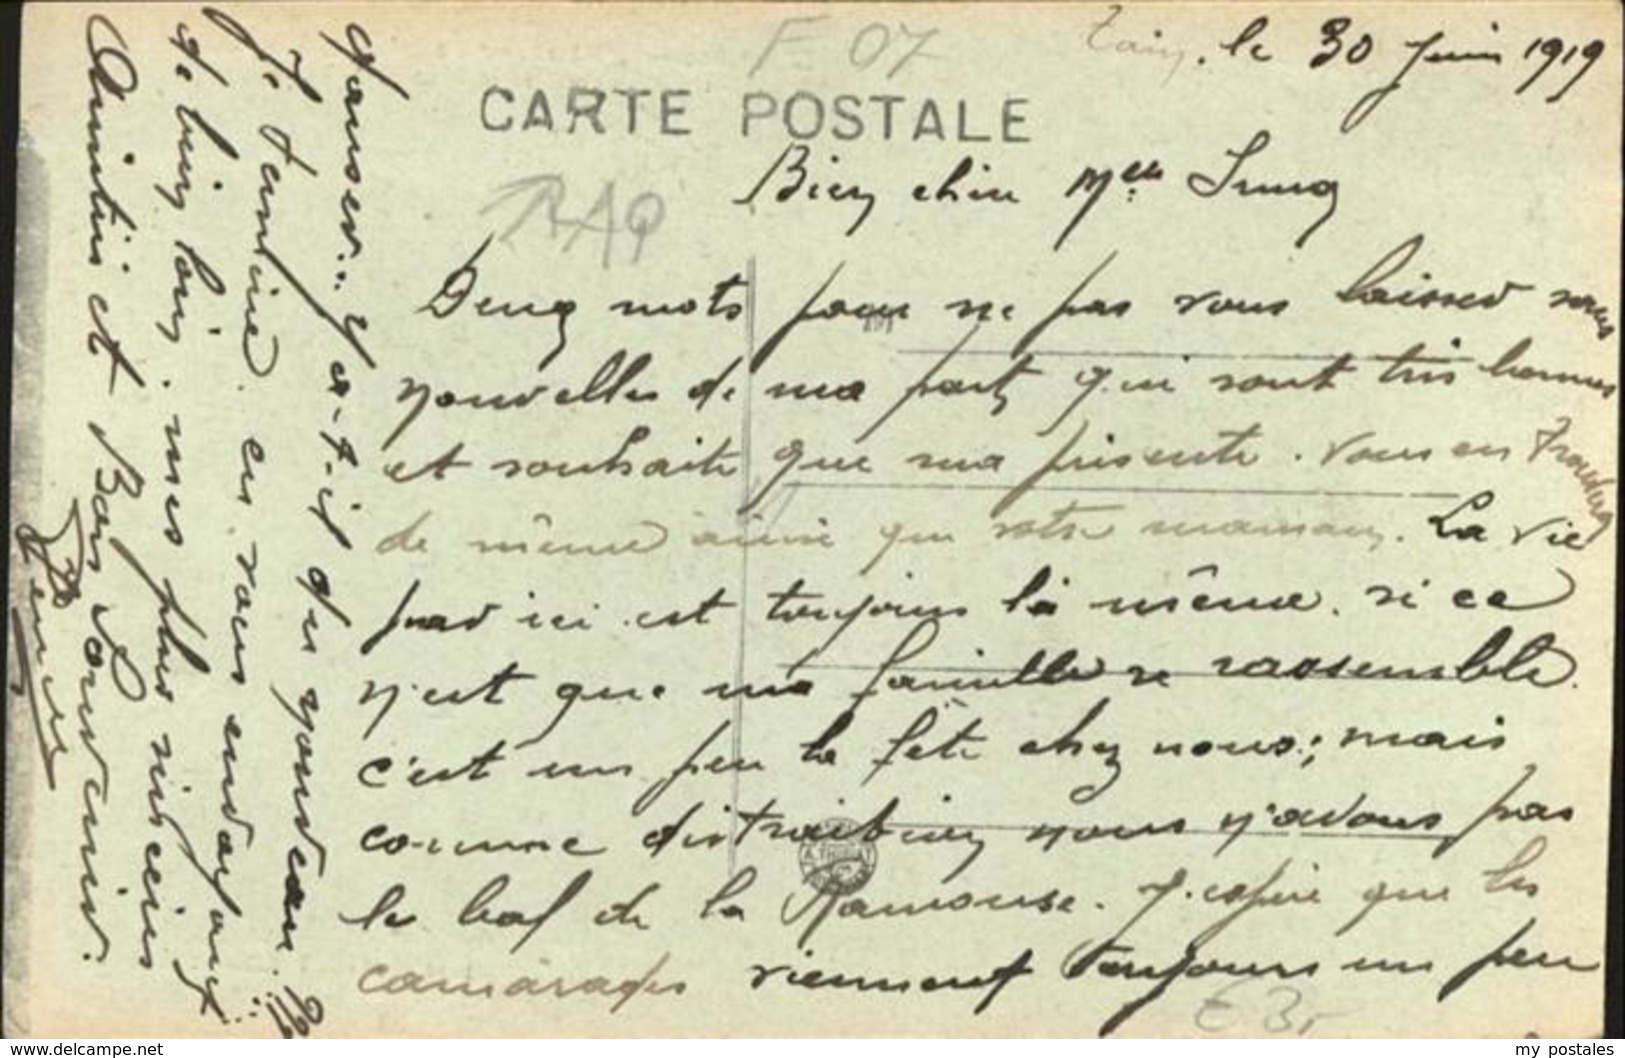 F 07
le 30 Juin 1919
CARTE POSTALE
Bien chère Melle
RAQ
Deux mots pour ne pas vous laisser sans
nouvelles de ma part, qui sont très bonnes
et souhaite que ma présente. Vous en trouverez
de même ainsi que votre maman. La vie
par ici est toujours la même. si ce
n'est que ma famille se rassemble.
c'est un peu la fête chez nous; mais
comme distraction nous n'avons pas
le bal de la Ramouse. J'espère que les
camarades viennent toujours un peu
danser... Y a-t-il du nouveau ??
Je termine ces vous envoyant
de bien loin. mes plus sincères
Amitiés et Bons Souvenirs.
E Br
www.delcampe.net
my postales